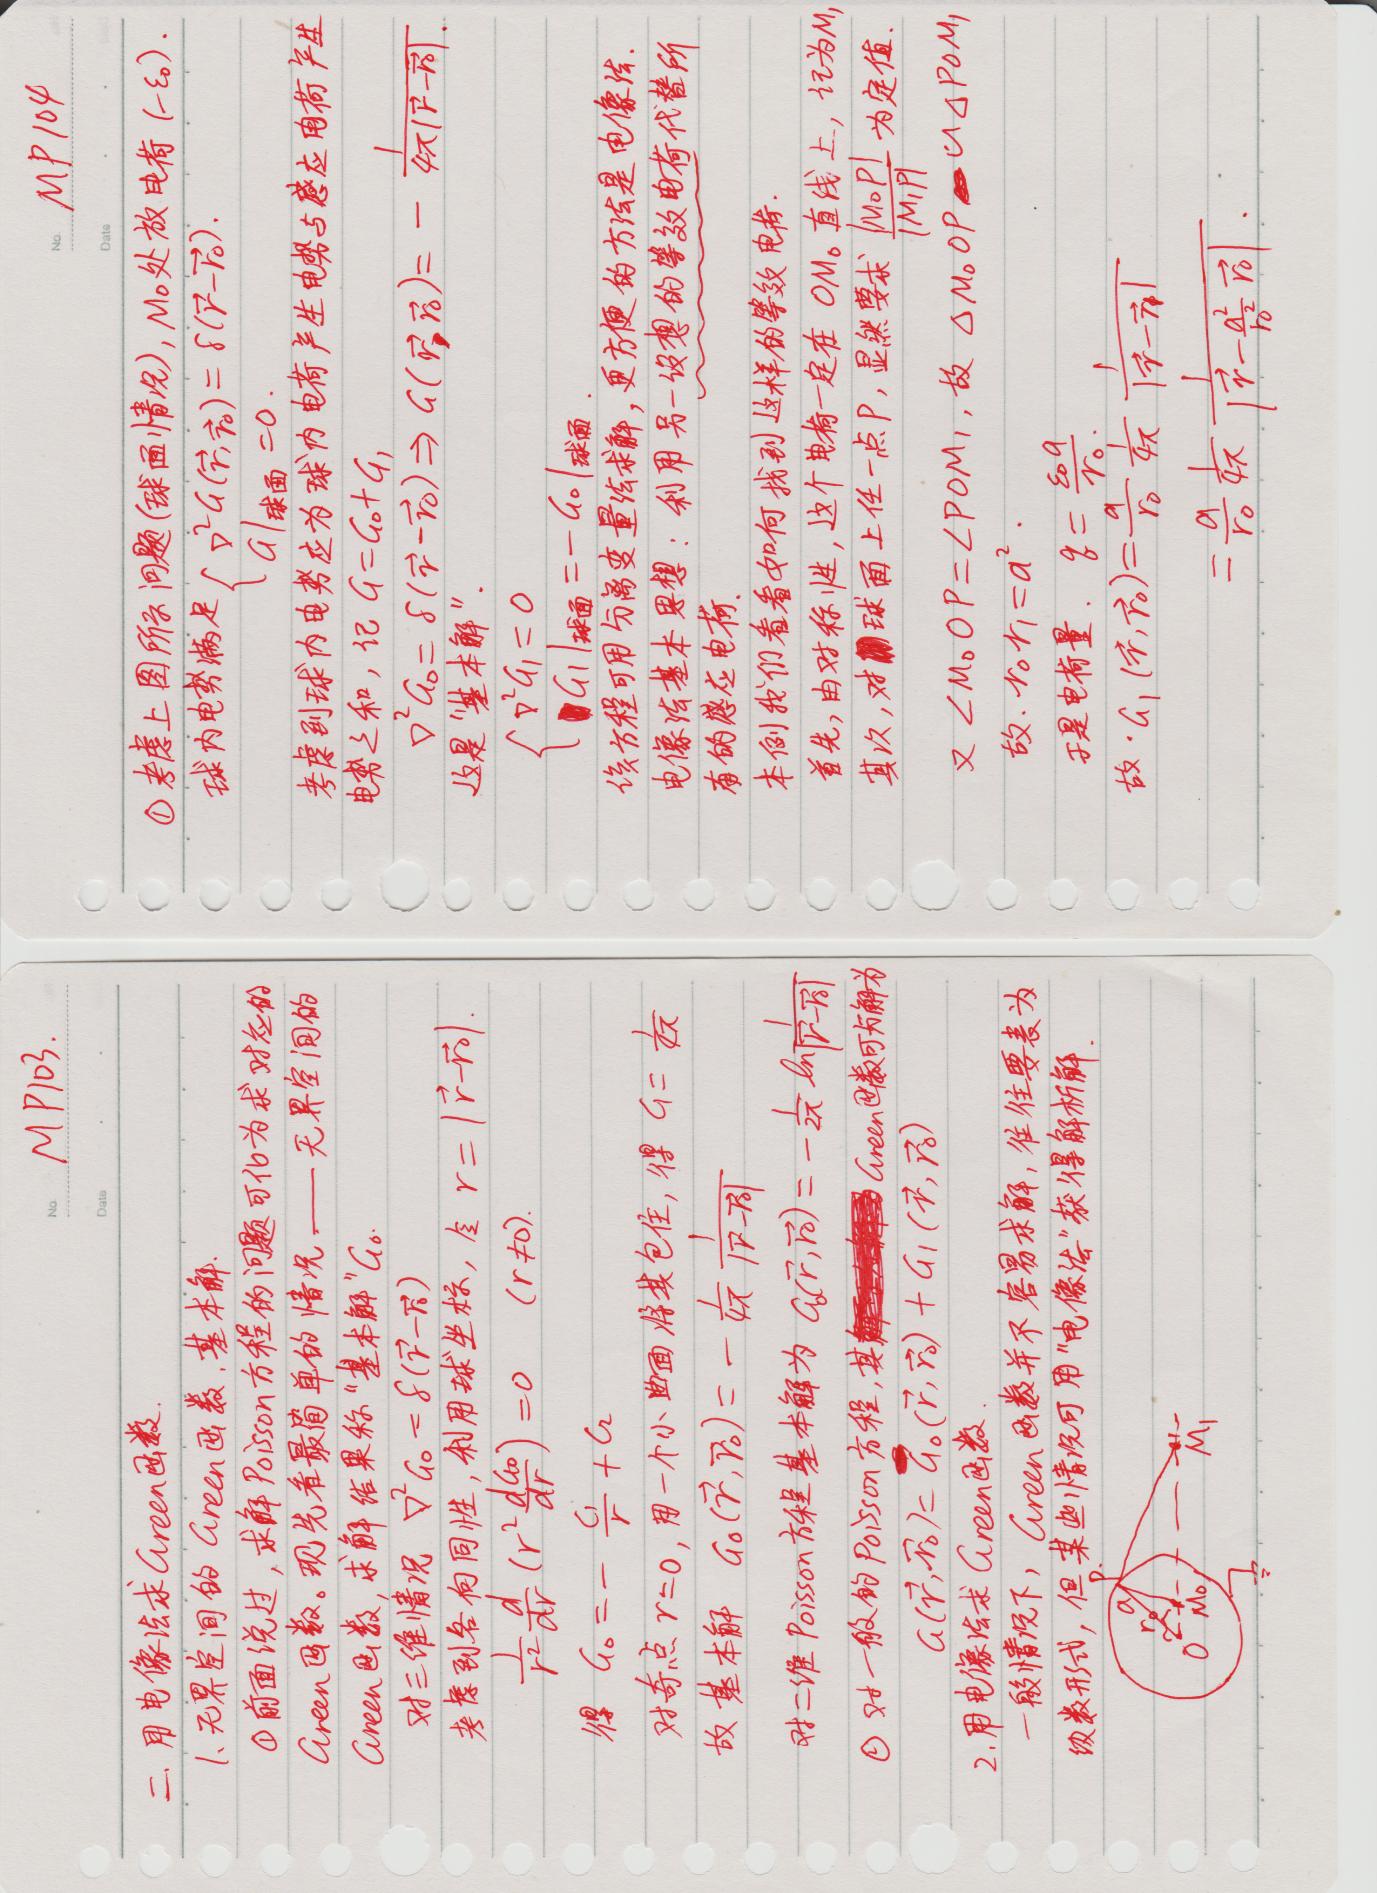 No. MP103.
Date
二. 用电像法求Green函数.
1. 无界空间的 Green函数. 基本解.
① 前面说过, 求解Poisson方程的问题可化为求对应的
Green函数。现先看最简单的情况 —— 无界空间的
Green函数, 求解结果称"基本解"G₀.
对三维情况 ∇²G₀ = δ(r⃗-r⃗₀)
考虑到各向同性, 利用球坐标, 令 r = |r⃗-r⃗₀|.
1/r² d/dr (r² dG₀/dr) = 0 (r≠0).
得 G₀ = - C₁/r + C₂
对奇点 r=0, 用一个小曲面将其包住, 得 C₁ = 1/4π
故基本解 G₀(r⃗,r⃗₀) = - 1/4π 1/|r⃗-r⃗₀|
对二维Poisson方程基本解为 G₀(r⃗,r⃗₀) = - 1/2π ln 1/|r⃗-r⃗₀|
② 对一般的Poisson方程, 其 Green函数可分解为
G(r⃗,r⃗₀) = G₀(r⃗,r⃗₀) + G₁(r⃗,r⃗₀)
2. 用电像法求 Green函数.
一般情况下, Green函数并不容易求解, 往往要表为
级数形式, 但某些情况可用"电像法"获得解析解.
P.
a
r₀
O M₀ M₁
No. MP104
Date
① 考虑上图所示问题(球面情况), M₀处放电荷 (-ε₀).
球内电势满足 { ∇²G(r⃗,r⃗₀) = δ(r⃗-r⃗₀).
G|球面 = 0.
考虑到球内电势应为球内电荷产生电势与感应电荷产生
电势之和, 记 G = G₀ + G₁
∇²G₀ = δ(r⃗-r⃗₀) ⇒ G(r⃗,r⃗₀) = - 1/4π|r⃗-r⃗₀|.
这是"基本解".
{ ∇²G₁ = 0
G₁|球面 = -G₀|球面.
该方程可用分离变量法求解, 更方便的方法是电像法.
电像法基本思想: 利用另一设想的等效电荷代替所
有的感应电荷.
本例我们看看如何找到这样的等效电荷.
首先, 由对称性, 这个电荷一定在 OM₀ 直线上, 记为M₁
其次, 对球面上任一点P, 显然要求 |M₀P|/|M₁P| 为定值.
又 ∠M₀OP = ∠POM₁, 故 △M₀OP ∽ △POM₁
故. r₀r₁ = a².
于是电荷量. q = ε₀a/r₀.
故. G₁(r⃗,r⃗₀) = a/r₀ 1/4π 1/|r⃗-r⃗₁|
= a/r₀ 1/4π 1/|r⃗ - a²/r₀² r⃗₀|.